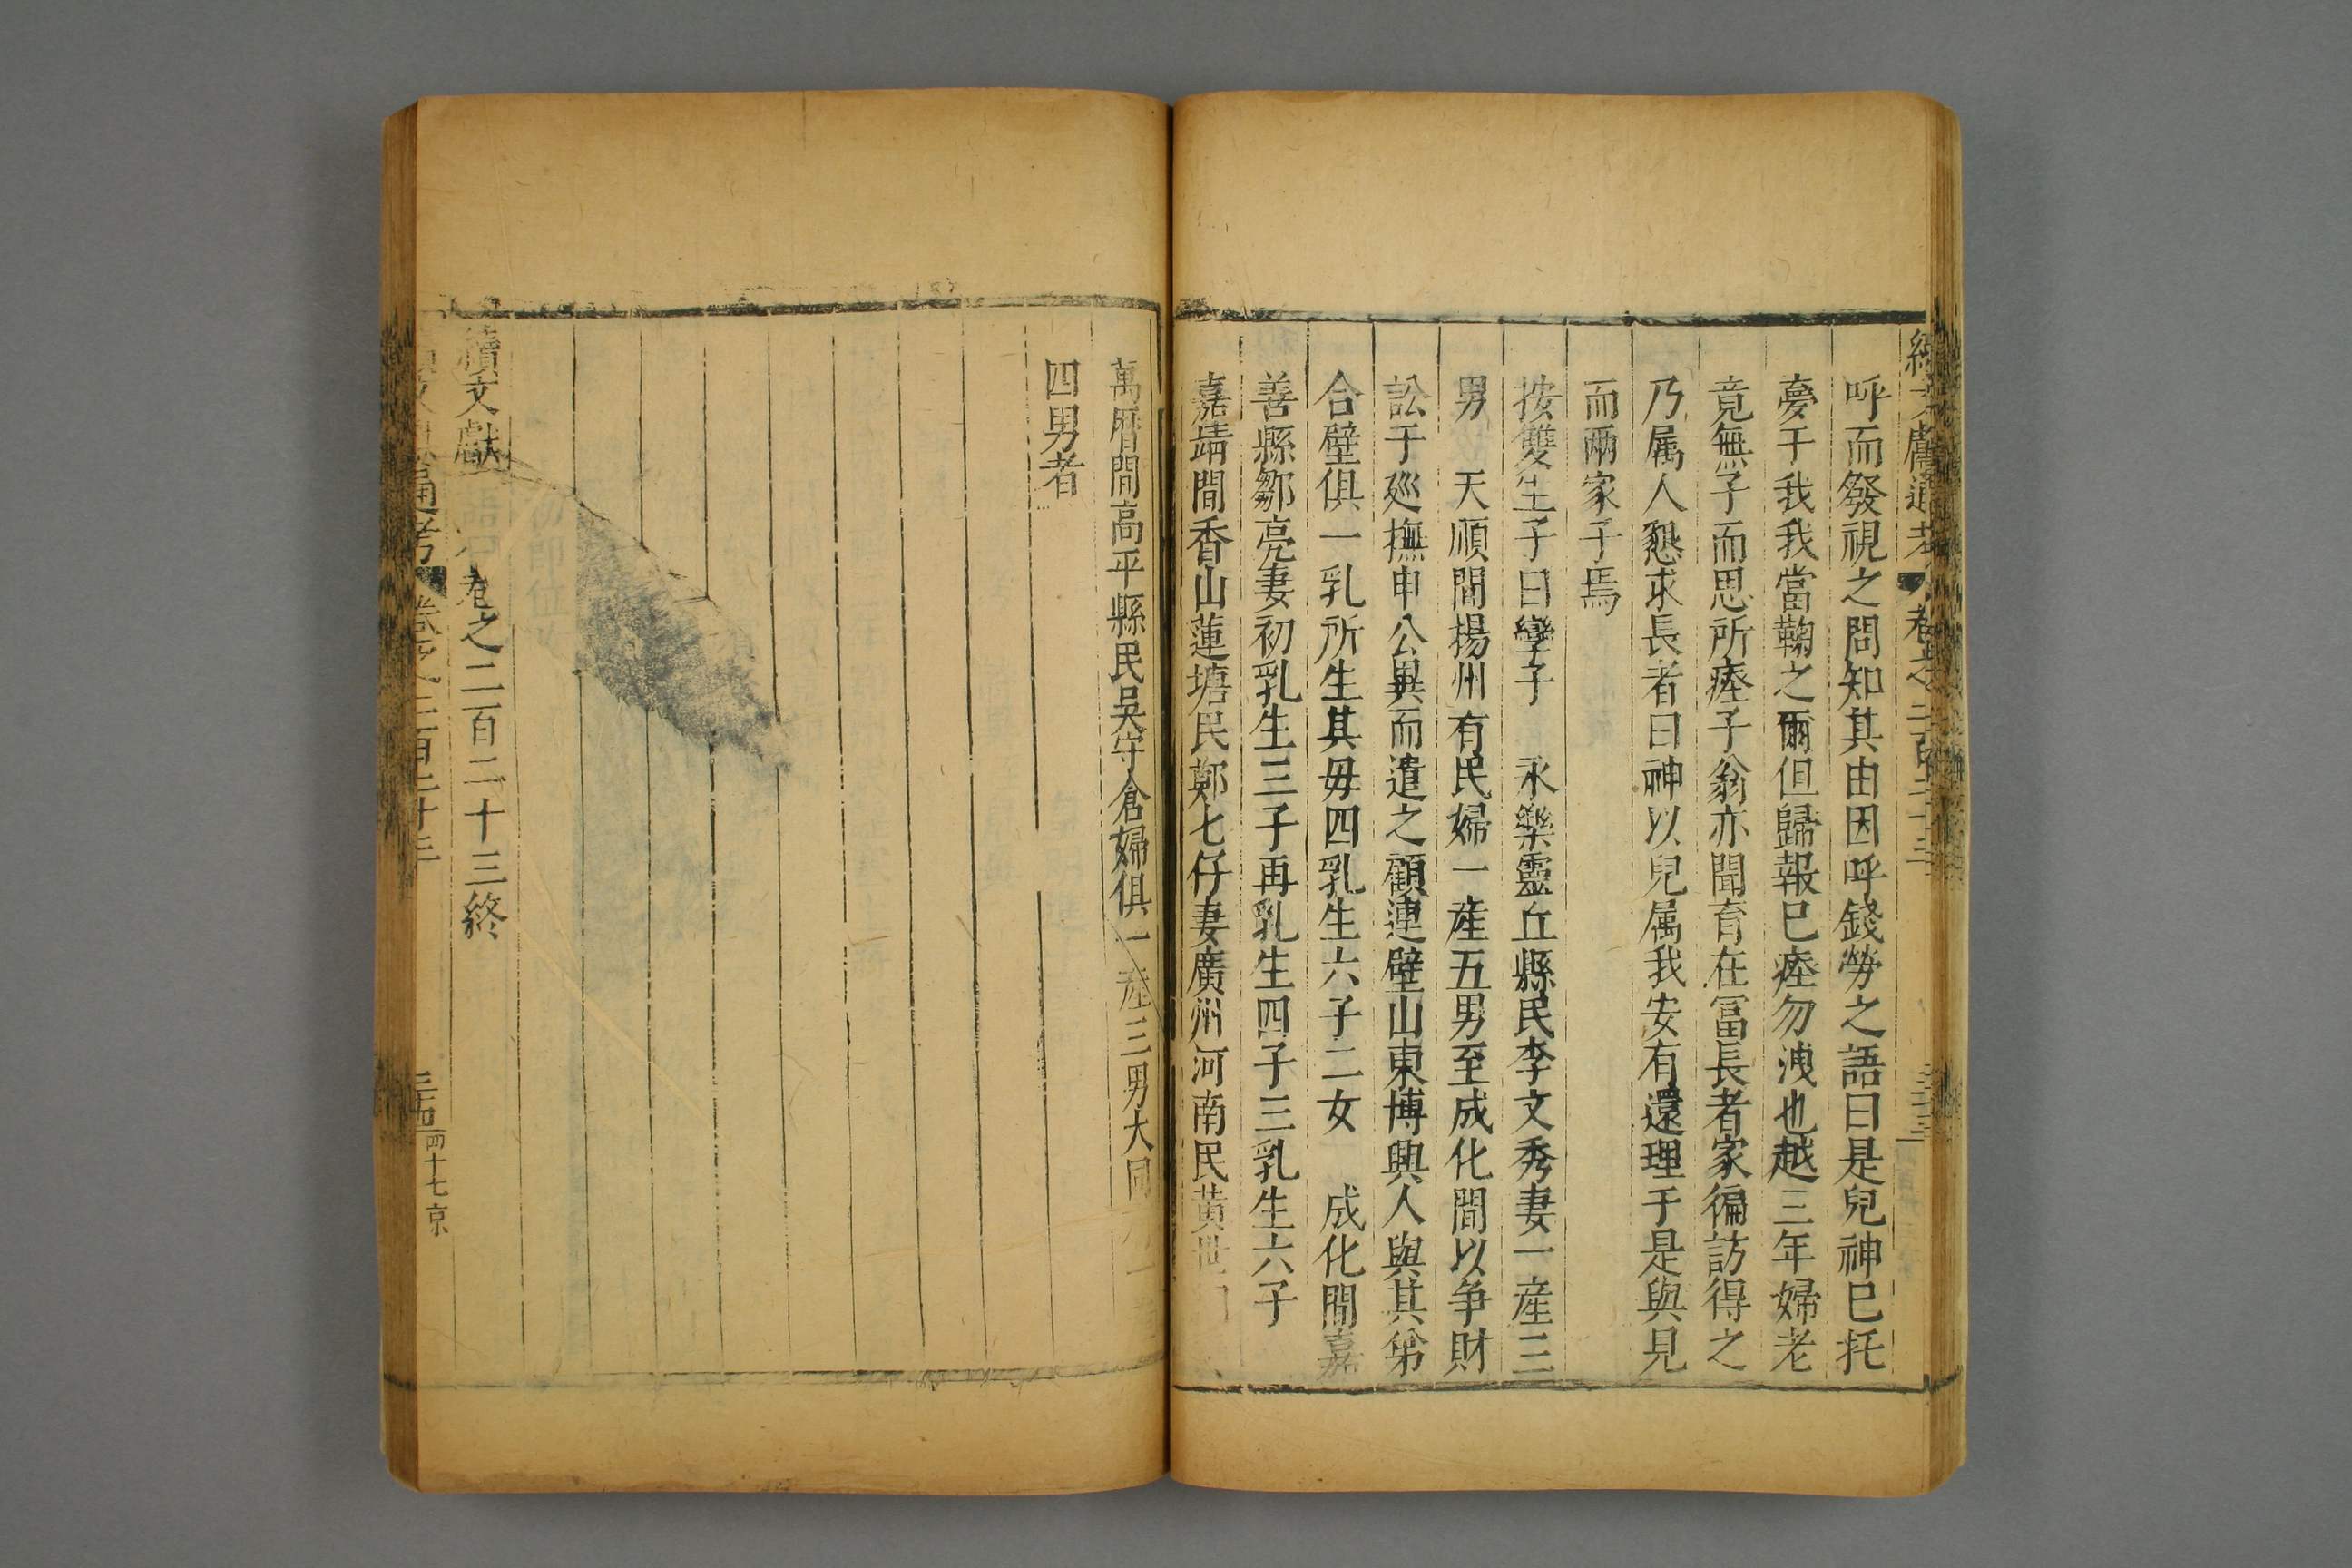 續文獻通考 卷之二百二十三 三十三
呼而發視之問知其由因呼錢勞之語曰是兒神巳托
夢于我我當鞠之爾但歸報巳瘞勿洩也越三年婦老
竟無子而思所瘞子翁亦聞育在富長者家徧訪得之
乃属人懇求長者曰神以兒属我安有還理于是與見
而兩家子焉
按雙生子曰孿子 永樂靈丘縣民李文秀妻一産三
男 天順間揚州有民婦一産五男至成化間以争財
訟于廵撫申公異而遣之顧連壁山東博興人與其弟
合壁俱一乳所生其毋四乳生六子二女 成化間嘉
善縣鄒亮妻初乳生三子再乳生四子三乳生六子
嘉靖間香山蓮塘民鄭七仔妻廣州河南民黄世
萬曆間高平縣民吳守倉婦俱一産三男大同 一
四男者
續文獻 卷之二百二十三終
通考 卷之二百二十三 三十四 四十七京